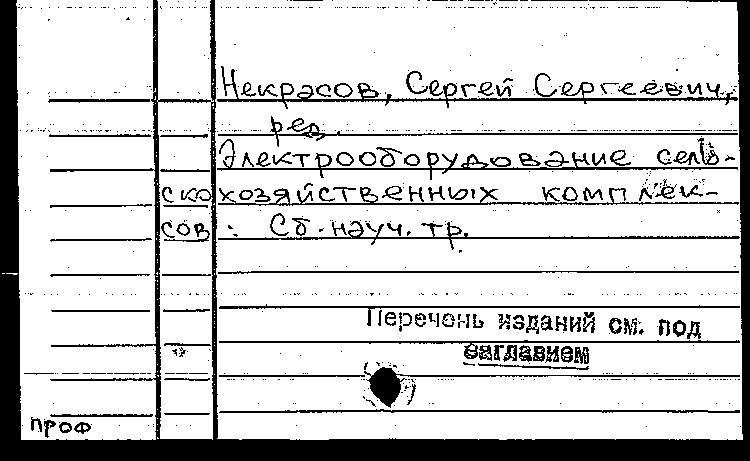 Некрасов, Сергей Сергеевич,
ред.
Электрооборудование сель-
скохозяйственных комплек-
сов : Сб. науч. тр.
Перечень изданий см. под
заглавием
проф